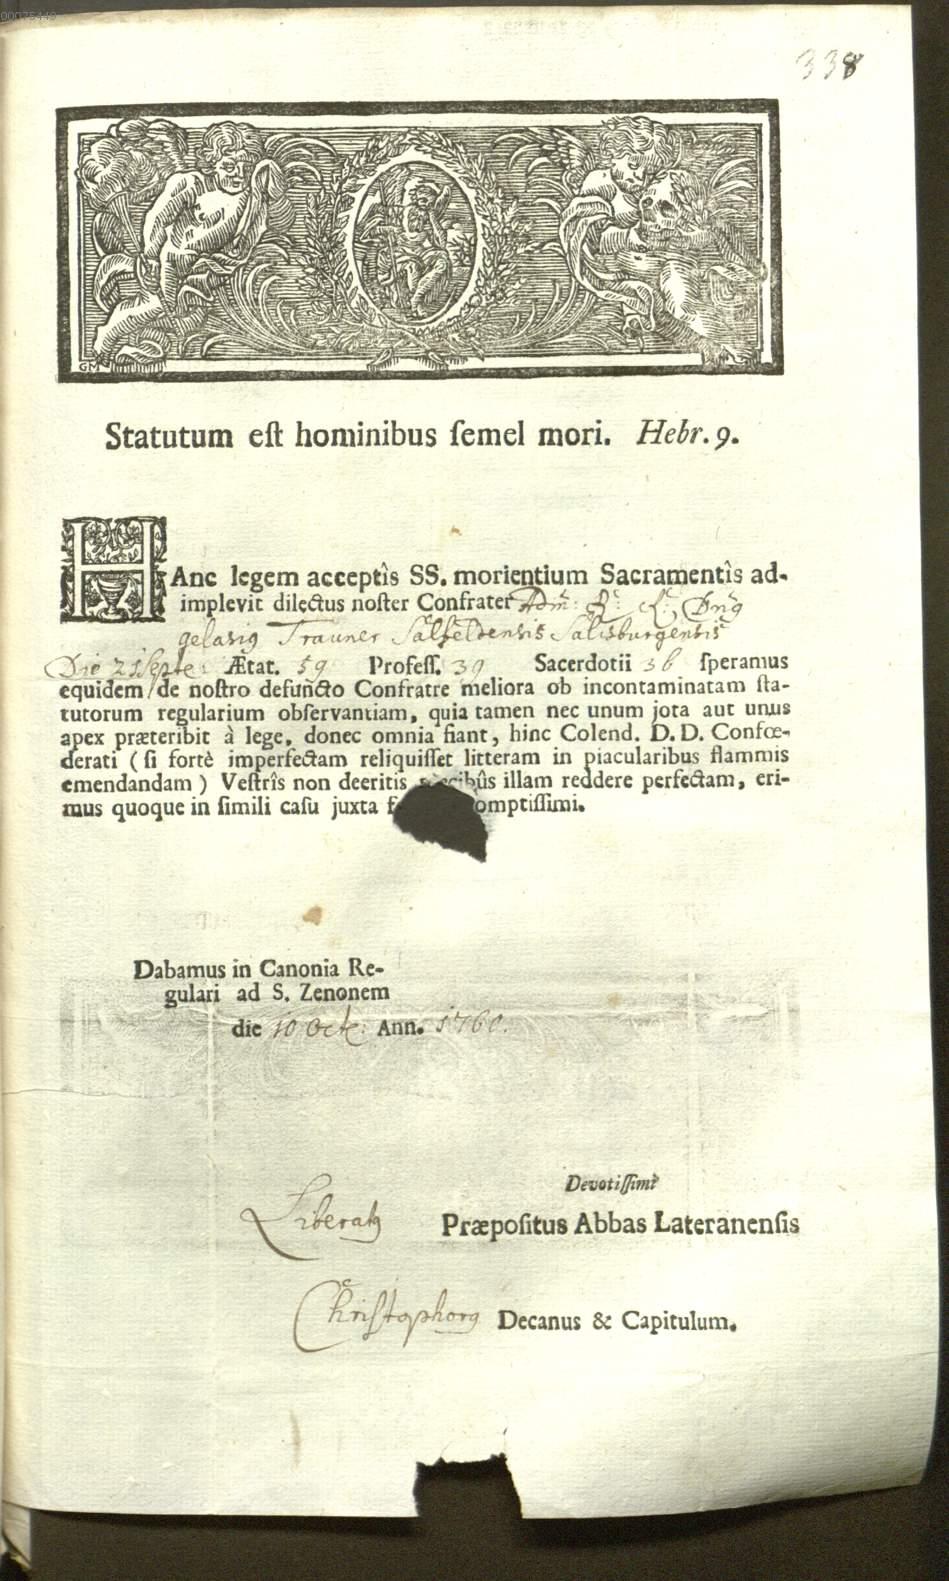 00075449
338
GM
Statutum eſt hominibus ſemel mori. Hebr. 9.
HAnc legem acceptîs SS. morientium Sacramentîs ad-
implevit dilectus noſter Confrater Adm: R: R: Dn̄g
gelasig Trauner Salfeldensis Salisburgensis
Die 21 Septe: Ætat. 59 Profeſſ. 39 Sacerdotii 36 ſperamus
equidem de noſtro defuncto Confratre meliora ob incontaminatam ſta-
tutorum regularium obſervantiam, quia tamen nec unum jota aut unus
apex præteribit à lege, donec omnia fiant, hinc Colend. D. D. Confœ-
derati (ſi fortè imperfectam reliquiſſet litteram in piacularibus flammis
emendandam) Veſtrîs non deeritis precibûs illam reddere perfectam, eri-
mus quoque in ſimili caſu juxta omptiſſimi.
Dabamus in Canonia Re-
gulari ad S. Zenonem
die 10 Octe: Ann. 1760.
Devotiſſimi
Liberatg Præpoſitus Abbas Lateranenſis
Christophorg Decanus & Capitulum.